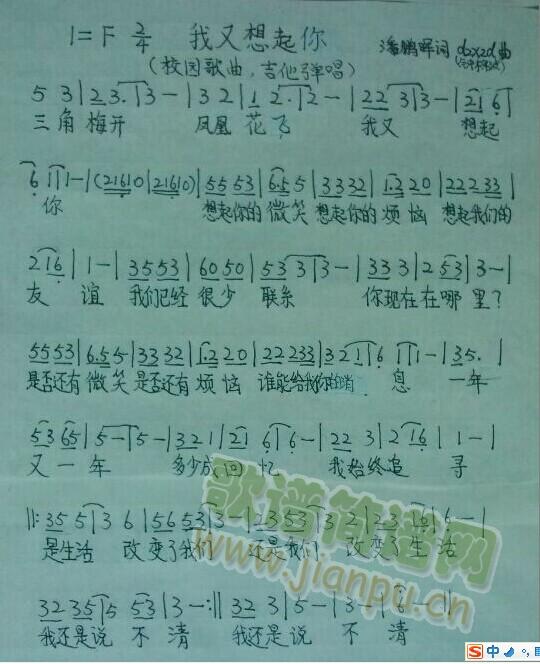 1=F 2/4 我又想起你 潘鹏晖词 曲
(校园歌曲,吉他弹唱)
5 3|2 3.|3-|3 2|1 2.|2-|22 3|3-|21 6|
三角梅开 凤凰花飞 我又 想起
6 1|1-|(21610|21610)|55 53|6.5 5|33 32|1.2 20|222 33|
你 想起你的微笑 想起你的烦恼 想起我们的
2 16|1-|35 53|60 50|53 3|3-|33 3|2 53|3-|
友谊 我们已经很少 联系 你现在在哪里?
55 53|6.5 5|33 32|1.2 20|22 233|3 2 1|6 1|1-|35.|
是否还有微笑 是否还有烦恼 谁能给我你的消息 一年
53 65|5-|5-|32 1|21 6|6-|22 3|2 16|1-|
又一年 多少成回忆 我始终追寻
‖:35 5|3 6|56 53|3-|23 53|3 2|23 16|6-|
是生活 改变了我们 还是我们 改变了生活
32 35|5 53|3-:‖32 3|5-|3-|6-‖
我还是说 不清 我还是说 不清
歌谱简谱网
www.jianpu.cn
中